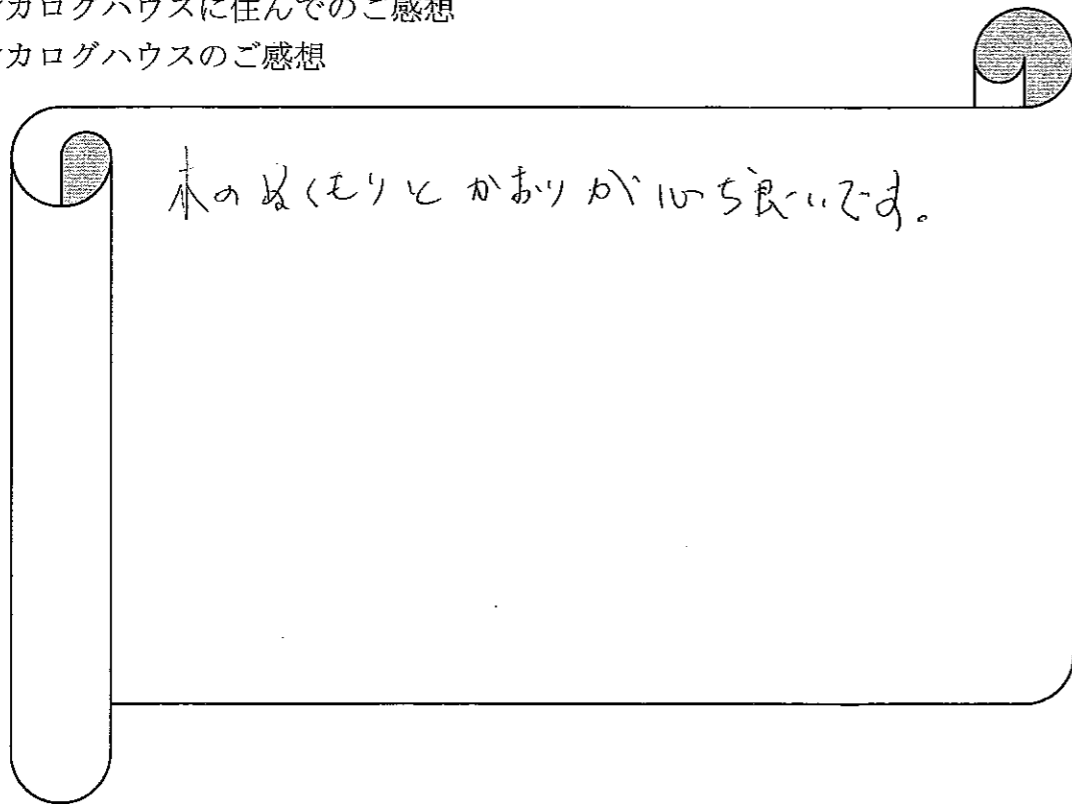 カログハウスに住んでのご感想
カログハウスのご感想
木のぬくもりとかおりが心ち良いです。